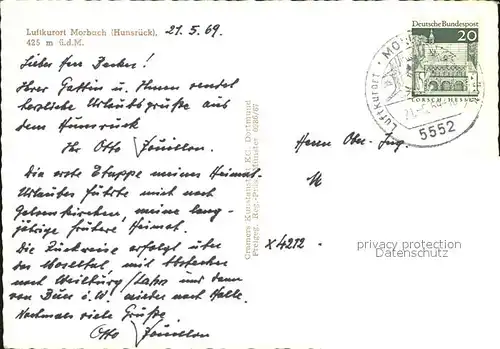 Luftkurort Morbach (Hunsrück).
425 m ü.d.M.
21.5.69.
Lieber Herr Becker!
Ihrer Gattin u. Ihnen sendet
herzliche Urlaubsgrüße aus
dem Hunsrück
Ihr Otto
Die erste Etappe meines Heimat-
Urlaubes führte mich nach
Gelsenkirchen, meine lang-
jährige frühere Heimat.
Die Rückreise erfolgt über
das Moseltal, mit Abstecher
nach Weilburg/Lahn und dann
von Büer i.W. wieder nach Halle.
Nochmals viele Grüße
Otto
Cramers Kunstanstalt KG, Dortmund
Preigeg. Reg.-Präs. Münster 6286/67
Deutsche Bundespost
20
LORSCH-HESSEN
LUFTKURORT
5552
Herrn Ober-Ing.
M
X4212
privacy protection
Datenschutz